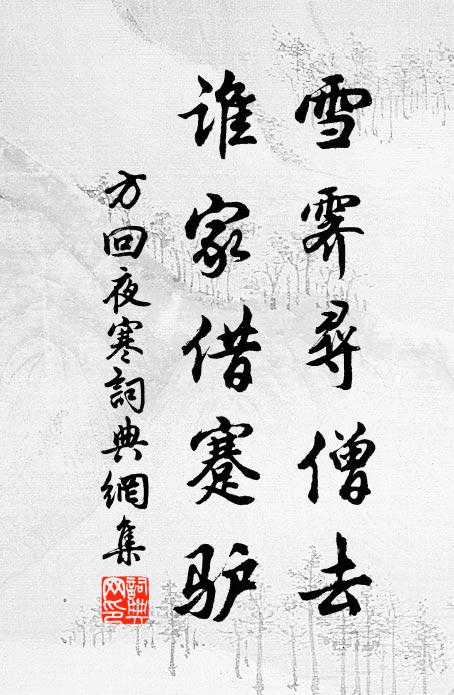 雪霁尋僧去
谁家借蹇驴
方回夜寒詞典網集
詞典网印